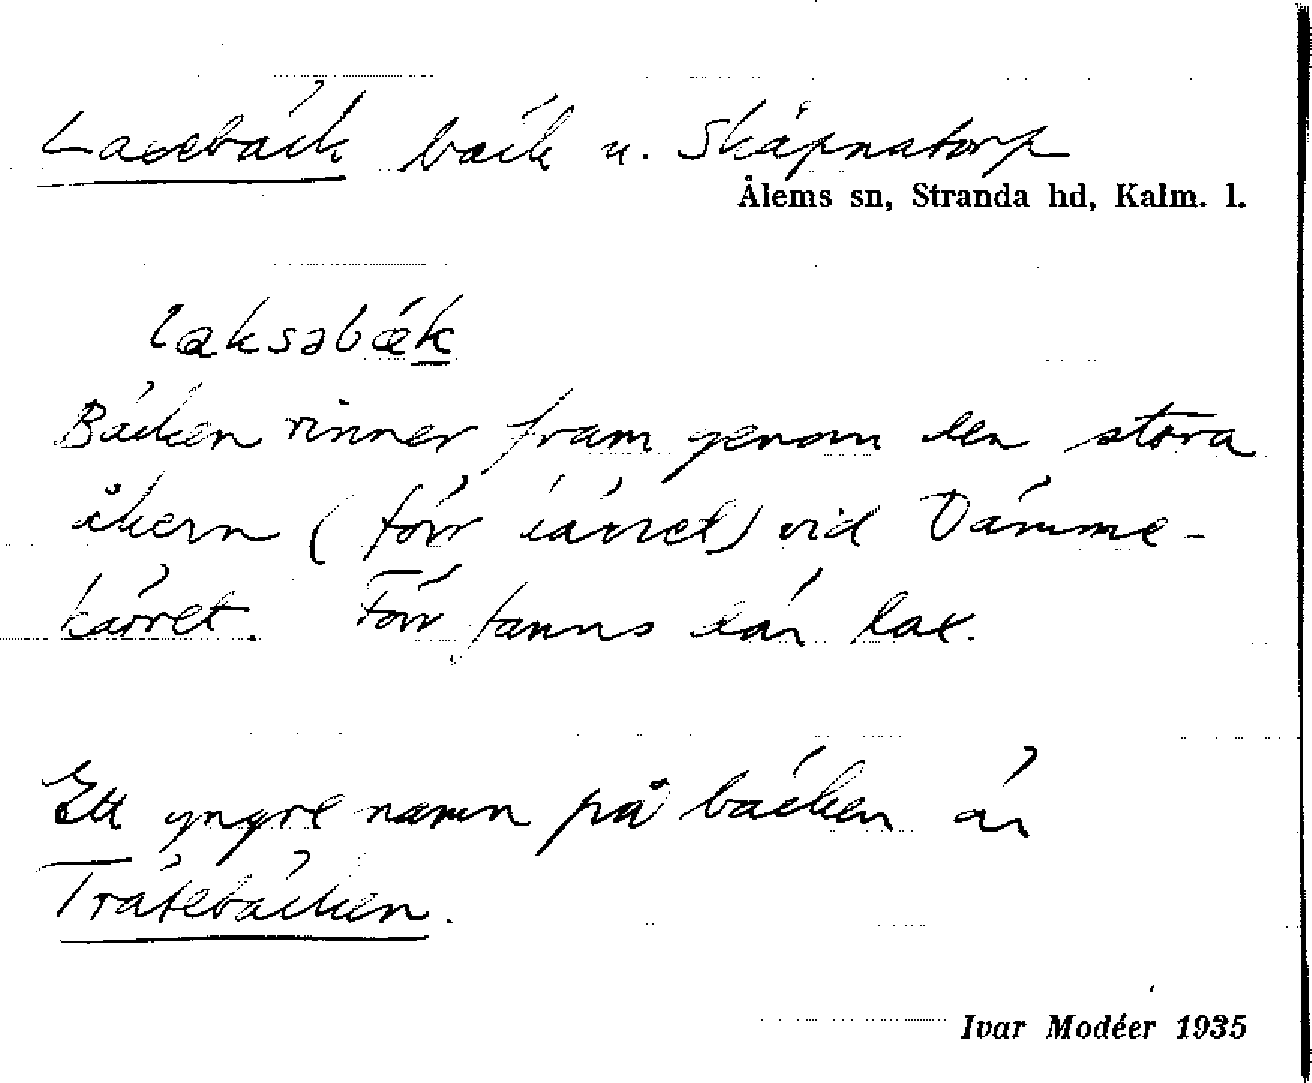 Laxebäck bäck u. Skäpnatorp
Ålems sn, Stranda hd, Kalm. l.
laksəbæk
Bäcken rinner fram genom den stora
åkern (förr kärret) vid Dämme-
kärret. Förr fanns där lax.
Ett yngre namn på bäcken är
Trätebäcken.
Ivar Modéer 1935